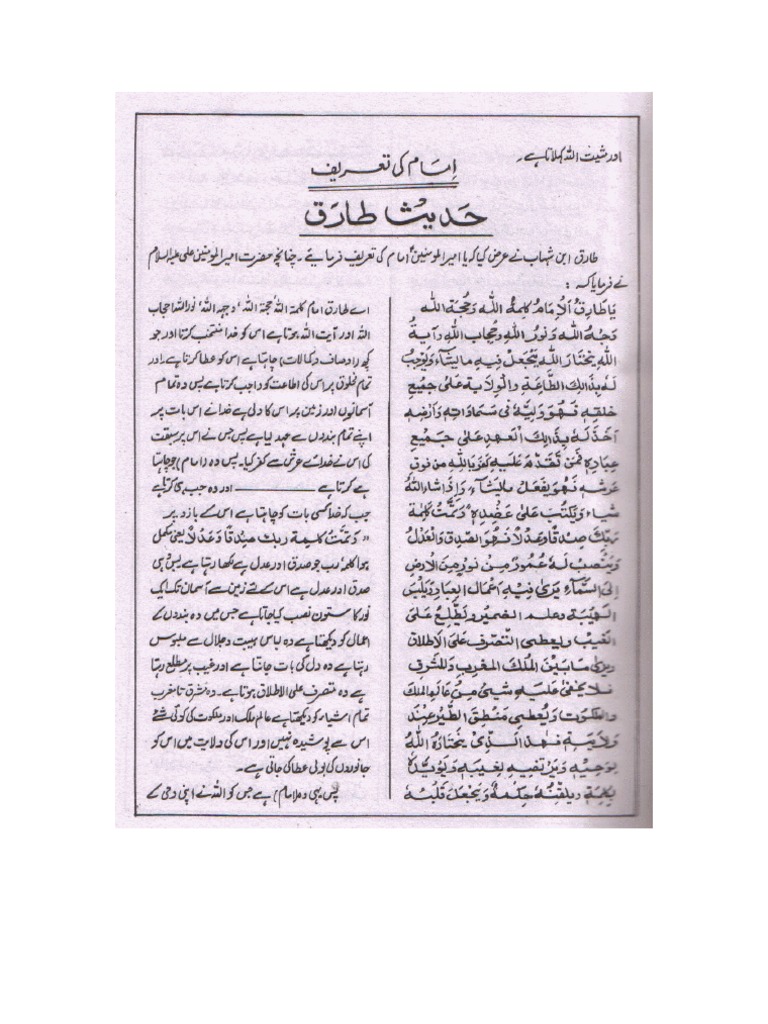 اور مشیت اللہ کہلاتا ہے۔
اِمام کی تعریف
حَدیث طارَق
طارق ابن شہاب نے عرض کیا کہ یا امیرالمومنین امام کی تعریف فرمایئے۔ چنانچہ حضرت امیرالمومنین علی علیہ السلام
نے فرمایا کہ :
یَا طَارِقُ اَلْاِمَامُ کَلِمَۃُ اللّٰہِ وَحُجَّۃُ اللّٰہِ
وَجْہُ اللّٰہِ وَنُوْرُ اللّٰہِ وَحِجَابُ اللّٰہِ وَآیَۃُ
اللّٰہِ یَخْتَارُ اللّٰہُ یَجْعَلُ فِیْہِ مَا یَشَآءُ وَیُوْجِبُ
لَہٗ بِذَالِکَ الطَّاعَۃَ وَالْوِلَایَۃَ عَلٰی جَمِیْعِ
خَلْقِہٖ فَہُوَ وَلِیُّہٗ فِی سَمَاوَاتِہٖ وَاَرْضِہٖ
اَخَذَ لَہٗ بِذَالِکَ الْعَہْدَ عَلٰی جَمِیْعِ
عِبَادِہٖ فَمَنْ تَقَدَّمَ عَلَیْہِ کَفَرَ بِاللّٰہِ مِنْ فَوْقِ
عَرْشِہٖ فَہُوَ یَفْعَلُ مَا یَشَآءُ وَاِذَا شَاءَ اللّٰہُ
شَیْاءً وَیُکْتَبُ عَلٰی عَضُدِہٖ وَتَمَّتْ کَلِمَۃُ
رَبِّکَ صِدْقًا وَعَدْلًا فَہُوَ الصِّدْقُ وَالْعَدْلُ
وَیُنْصَبُ لَہٗ عَمُوْدٌ مِنْ نُوْرٍ مِنَ الْاَرْضِ
اِلَی السَّمَآءِ یَرٰی فِیْہِ اَعْمَالَ الْعِبَادِ وَیُلْبَسُ
الْہَیْبَۃَ وَعِلْمَ الضَّمِیْرِ وَیَطَّلِعُ عَلَی
الْغَیْبِ وَیُعْطٰی التَّصَرُّفَ عَلَی الْاِطْلَاقِ
وَیَرٰی مَا بَیْنَ الْمَغْرِبِ وَالْمَشْرِقِ
فَلَا یَخْفٰی عَلَیْہِ شَیْئٌ مِنْ عَالَمِ الْمُلْکِ
وَالْمَلَکُوْتِ وَیُعْطٰی مَنْطِقَ الطَّیْرِ عِنْدَ
وِلَایَتِہٖ فَہٰذَ الَّذِیْ یَخْتَارُہُ اللّٰہُ
بِوَحْیِہٖ وَیَرْتَضِیْہِ لِغَیْبِہٖ وَیُؤَیِّدُہٗ
بِکَلِمَتِہٖ وَیُلَقِّنُہٗ حِکْمَتَہٗ وَیَجْعَلُ قَلْبَہٗ
اے طارق امام کلمۃ اللہ، حجۃ اللہ، وجہ اللہ، نور اللہ، حجاب
اللہ اور آیت اللہ ہوتا ہے اس کو خدا منتخب کرتا اور جو
کچھ (اوصاف و کمالات) چاہتا ہے اس کو عطا کرتا ہے۔ اور
تمام مخلوق پر اس کی اطاعت کو واجب کرتا ہے پس وہ تمام
آسمانوں اور زمین پر اس کا ولی ہے خدا نے اس بات پر
اپنے تمام بندوں سے عہد لیا ہے پس جس نے اس پر سبقت
کی اس نے خدائے عرش سے کفر کیا۔ پس وہ (امام) جو چاہتا
ہے کرتا ہے ــــــــــــ اور وہ جب ہی کرتا ہے
جب کہ خدا کسی بات کو چاہتا ہے اس کے بازو پر
"وَتَمَّتْ کَلِیمَۃُ رَبِّکَ صِدْقًا وَعَدْلًا" یعنی مکمل
ہوا کلمہ رب جو صدق اور عدل ہے لکھا رہتا ہے پس ہی
صدق اور عدل ہے اس کے لئے زمین سے آسمان تک ایک
نور کا ستون نصب کیا جاتا ہے جس میں وہ بندوں کے
اعمال کو دیکھتا ہے وہ لباس ہیبت و جلال سے ملبوس
رہتا ہے وہ دل کی بات جانتا ہے اور غیب پر مطلع رہتا
ہے وہ متصرف علی الاطلاق ہوتا ہے۔ وہ مشرق تا مغرب
تمام اشیاء کو دیکھتا ہے عالم ملک اور ملکوت کی کوئی شئے
اس سے پوشیدہ نہیں اور اس کی ولایت میں اس کو
جانوروں کی بولی عطا کی جاتی ہے۔
پس یہی وہ (امام) ہے جس کو اللہ نے اپنی وحی کے